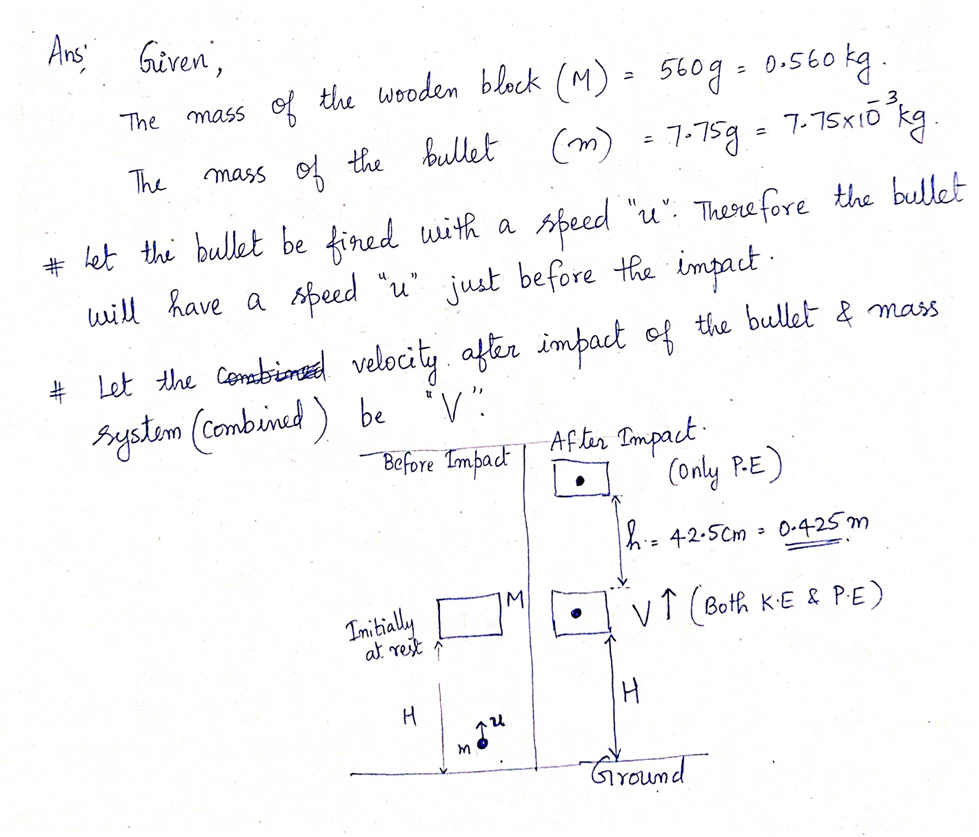 Ans: Given,
The mass of the wooden block (M) = 560g = 0.560 kg.
The mass of the bullet (m) = 7.75g = 7.75×10⁻³ kg.
# Let the bullet be fired with a speed "u". Therefore the bullet
will have a speed "u" just before the impact.
# Let the combined velocity after impact of the bullet & mass
system (combined) be "V".
Before Impact
After Impact.
(Only P.E)
h = 42.5cm = 0.425 m
M
V ↑ (Both K.E & P.E)
Initially
at rest
H
H
u
m
Ground